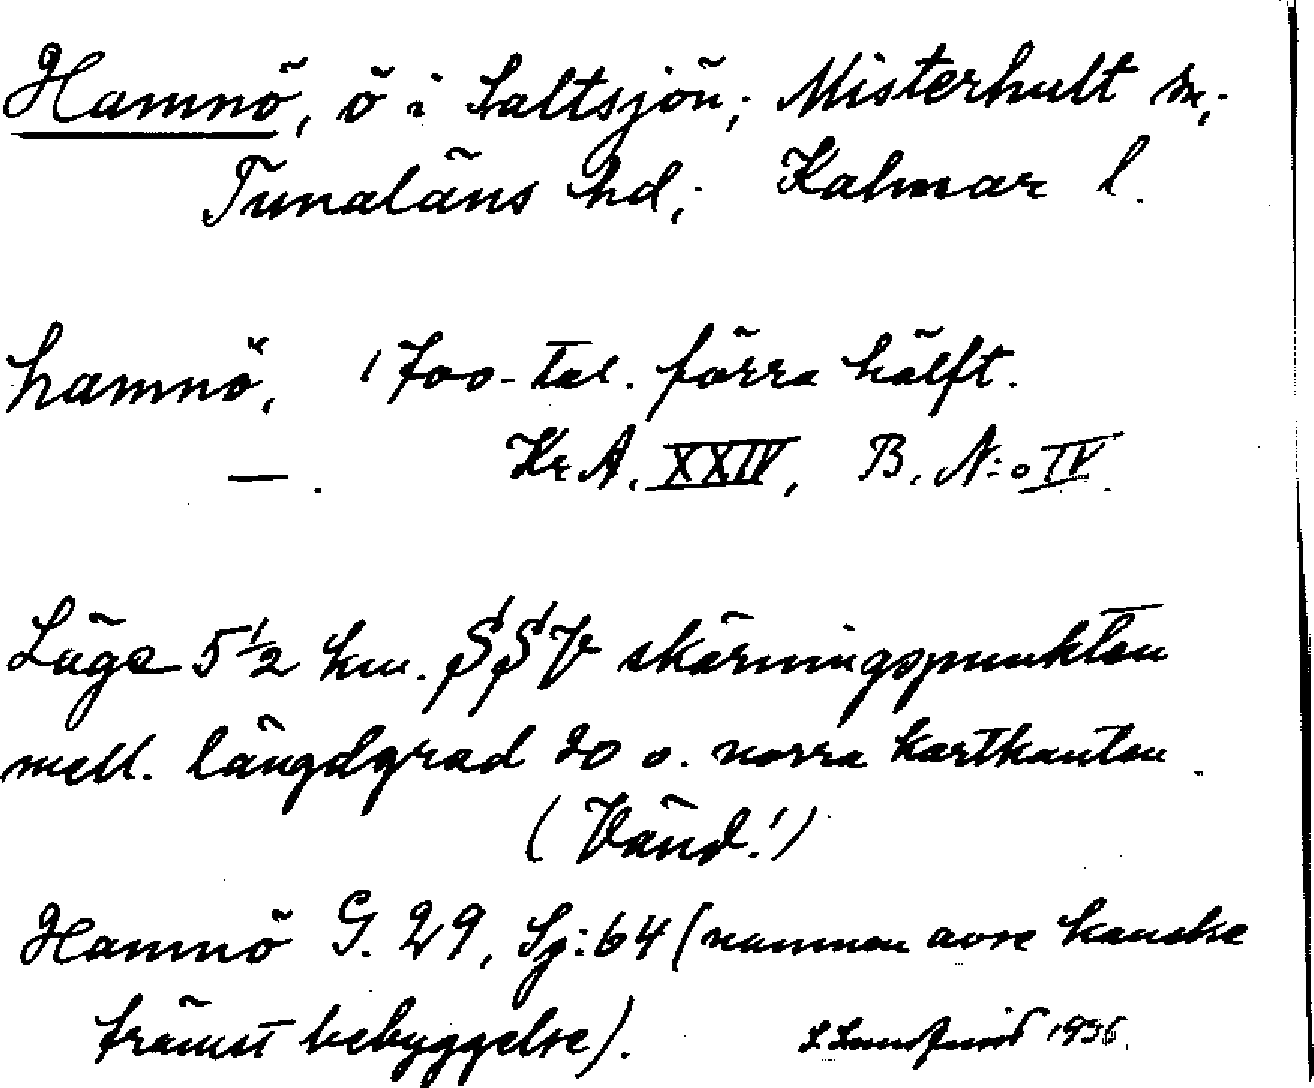 Hamnö, ö i Saltsjön; Misterhult sn;
Tunaläns hd; Kalmar l.
hamnö, 1700-tal. förra hälft.
—. Kr A. XXIV, B. N:o IV.
Läge 5 1/2 km. SSV skärningspunkten
mell. längdgrad 20 o. norra kartkanten.
(Vänd!)
Hamnö G. 29, Sj: 64 (namnen avse kanske
främst bebyggelse). 1936.